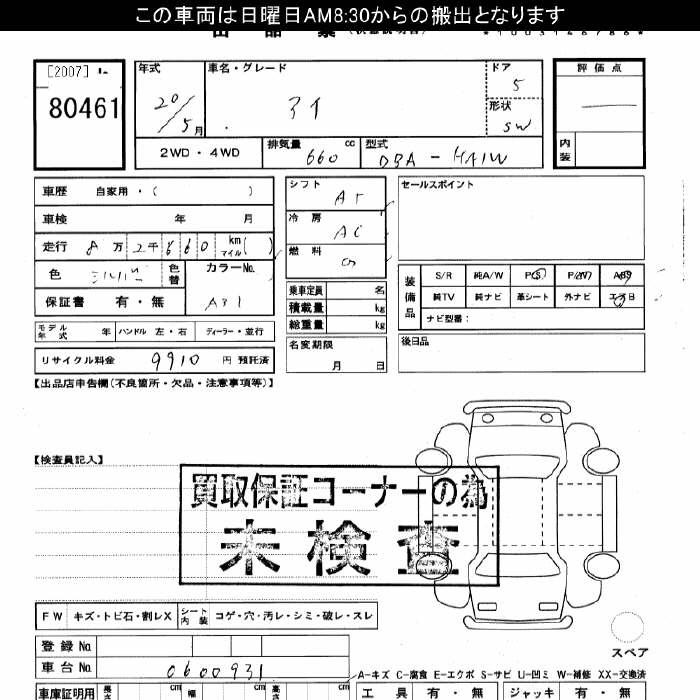 この車両は日曜日AM8:30からの搬出となります
[2007]
80461
年式
20/5月
車名・グレード
アイ
ドア
5
形状
SW
評価点
内装
2WD・4WD
排気量 660 cc
型式 DBA-HA1W
車歴 自家用・( )
車検 年 月
走行 8万2千660 km マイル( )
色 シルバー 色替
カラーNo.
A31
保証書 有・無
シフト AT
冷房 AC
燃料 G
乗車定員 名
積載量 kg
総重量 kg
名変期限
月 日
セールスポイント
装備品
S/R 純A/W P/S P/W ABS
純TV 純ナビ 革シート 外ナビ エアB
ナビ型番:
後日品
モデル年式 年 ハンドル 左・右 ディーラー・並行
リサイクル料金 9910 円 預託済
【出品店申告欄(不良箇所・欠品・注意事項等)】
【検査員記入】
買取保証コーナーの為
未検査
FW キズ・トビ石・割レX シート内装 コゲ・穴・汚レ・シミ・破レ・スレ
登録No.
車台No. 0600931
スペア
A-キズ C-腐食 E-エクボ S-サビ U-凹ミ W-補修 XX-交換済
車庫証明用 長さ cm 幅 cm 高さ cm
工具 有・無 ジャッキ 有・無